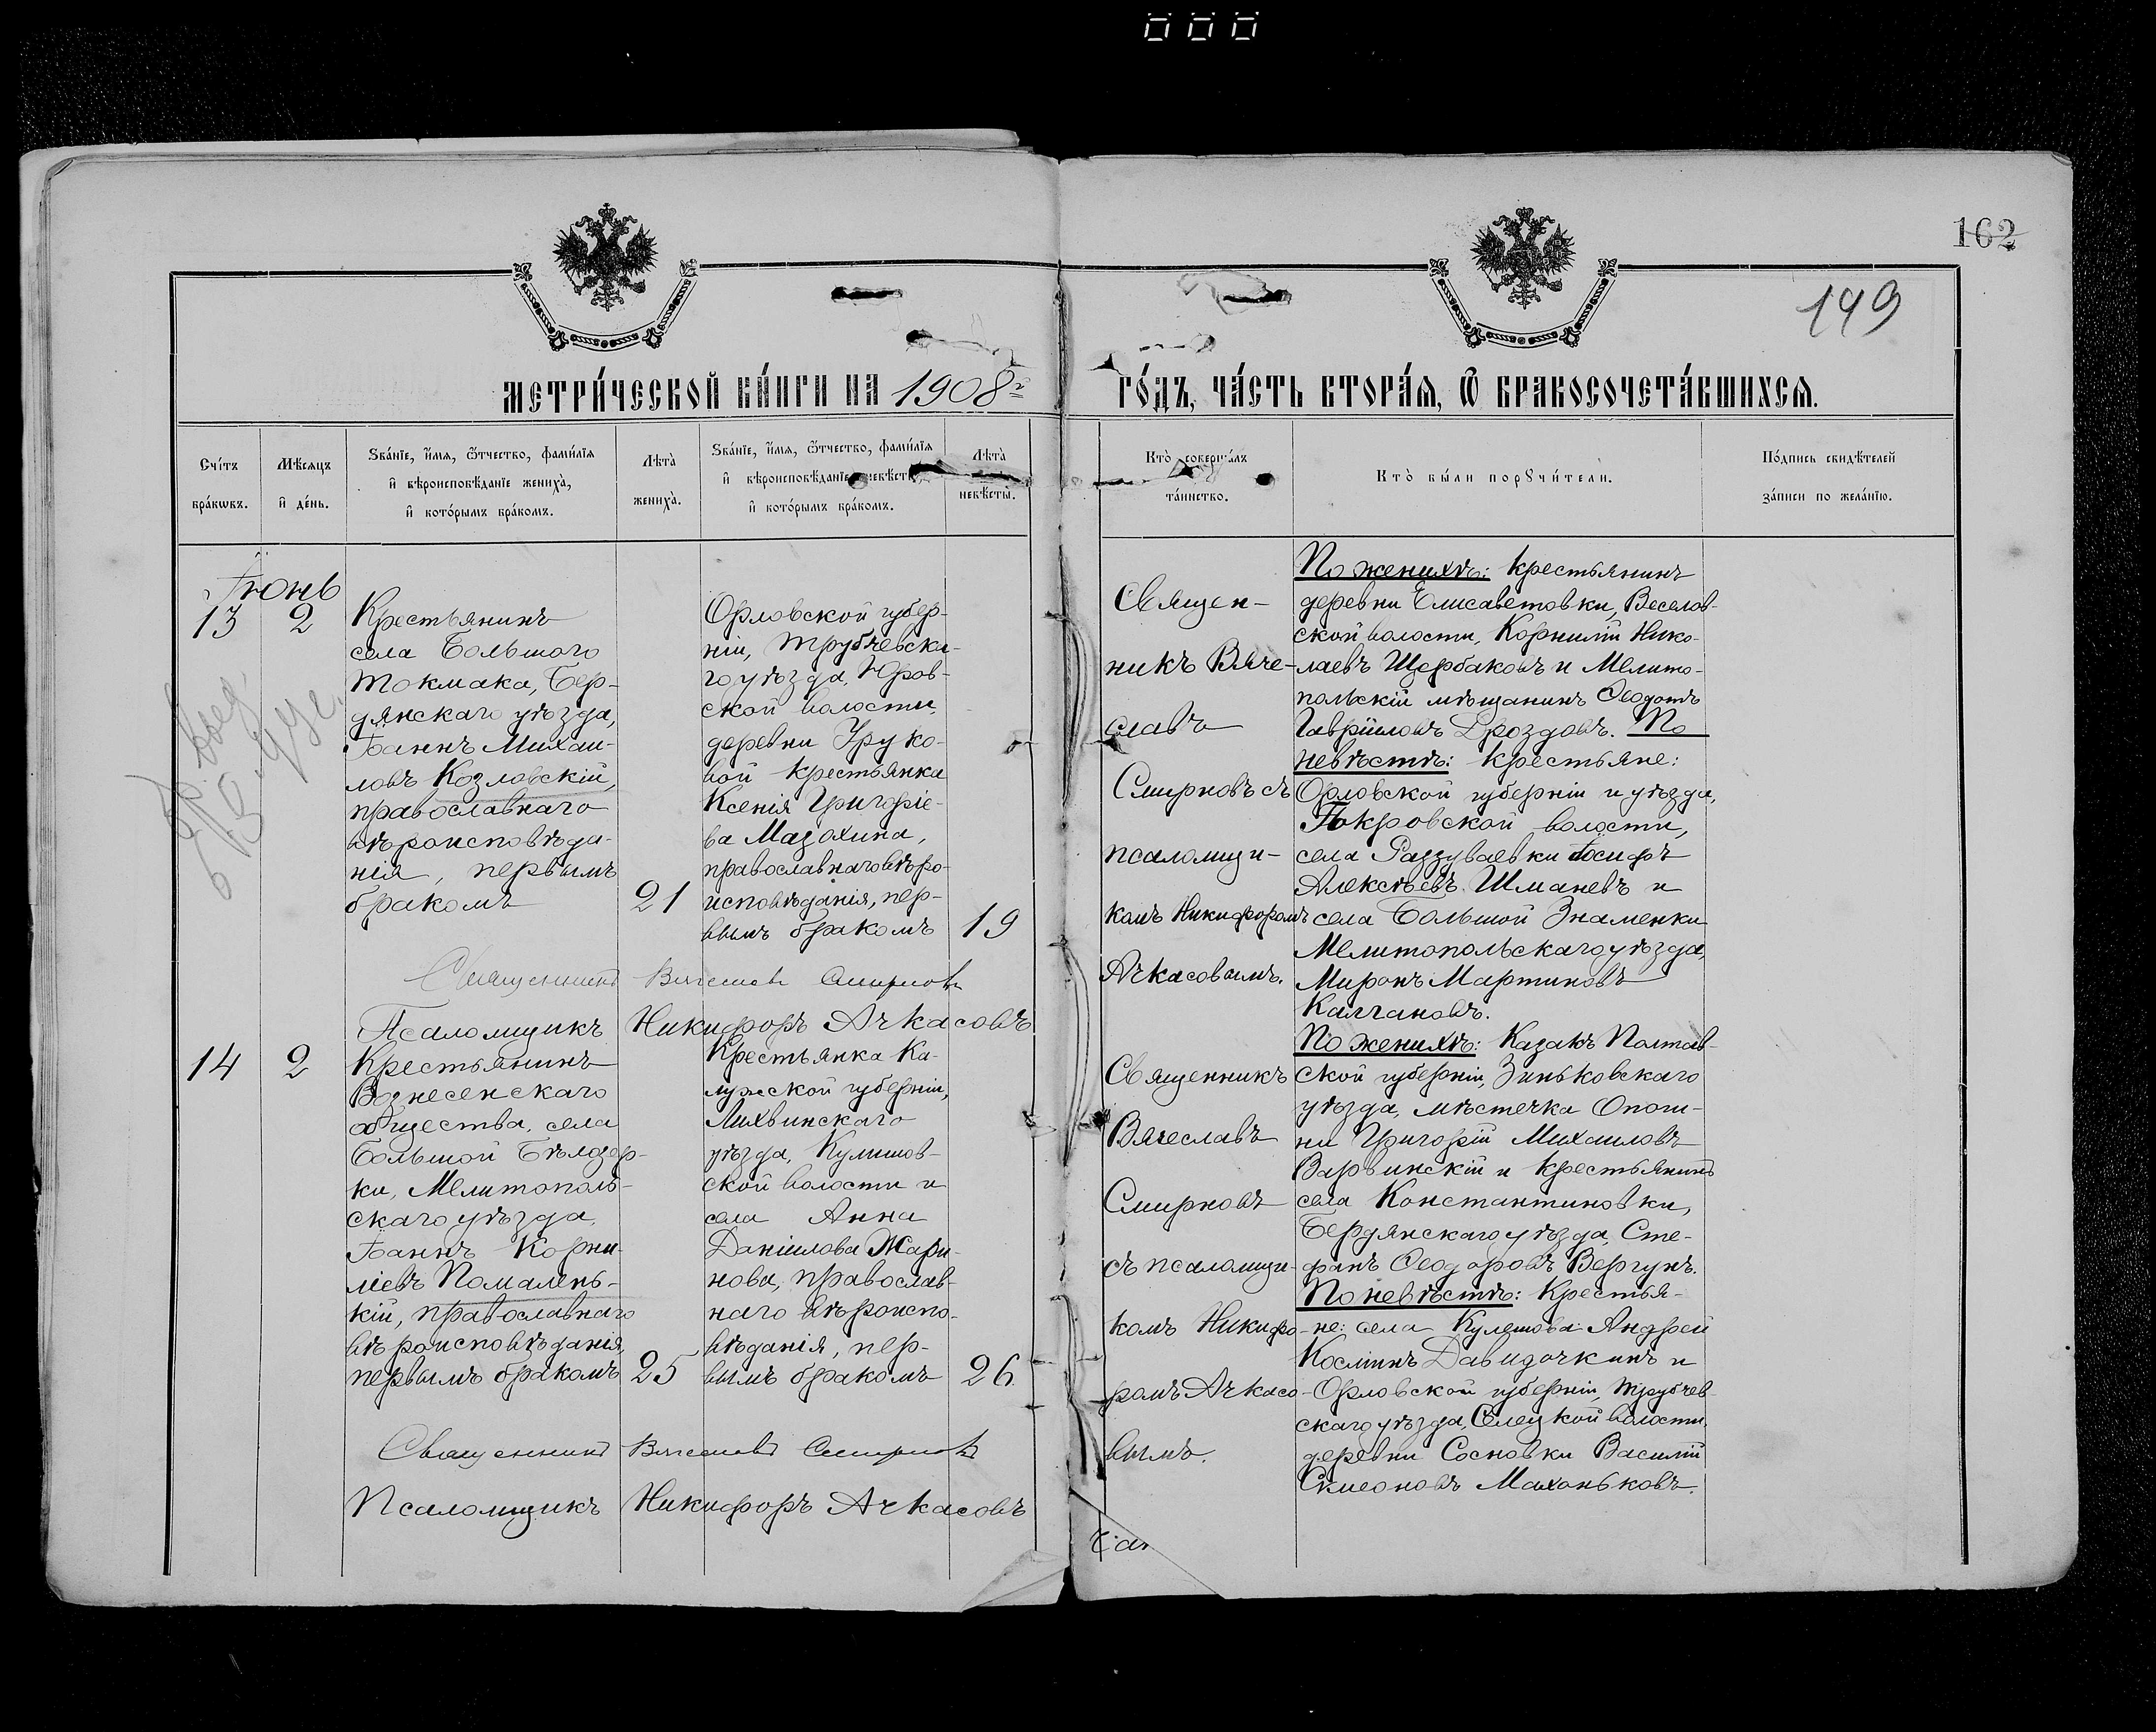 000
162
149
МЕТРИ́ЧЕСКОЙ КНИ́ГИ НА 1908 г.
ГО́ДЪ, ЧА́СТЬ ВТОРА́Я, Ѿ БРАКОСОЧЕТА́ВШИХСЯ.
Сче́тъ бра́кѡвъ.
Мѣ́сяцъ и҆ де́нь.
Ѕва́нїе, и҆́мя, ѻ҆́тчество, фами́лїя и҆ вѣроисповѣ́данїе жениха̀, и҆ кото́рымъ бра́комъ.
Лѣта̀ жениха̀.
Ѕва́нїе, и҆́мя, ѻ҆́тчество, фами́лїя и҆ вѣроисповѣ́данїе невѣ́сты, и҆ кото́рымъ бра́комъ.
Лѣта̀ невѣ́сты.
Кто̀ соверша́лъ та́инство.
Кто̀ бы́ли порꙋчи́тели.
По́дпись свидѣ́телей за́писи по жела́нїю.
Іюнь
13
2
Крестьянинъ
села Большого
Токмака, Бер-
дянскаго уѣзда,
Іоаннъ Михаи-
ловъ Козловскій,
православнаго
вѣроисповѣда-
нія, первымъ
бракомъ
21
Орловской губер-
ніи, Трубчевска-
го уѣзда, Юров-
ской волости,
деревни
вой крестьянка
Ксенія Григоріе-
ва Мазохина,
православнаго вѣро-
исповѣданія, пер-
вымъ бракомъ
19
Священ-
никъ Вяче-
славъ
Смирновъ съ
псаломщи-
комъ Никифоромъ
Ачкасовымъ.
По женихѣ: крестьянинъ
деревни Елисаветовки, Веселов-
ской волости, Корнилій Нико-
лаевъ Щербаковъ и Мелито-
польскій мѣщанинъ Ѳеодотъ
Гавріиловъ Дроздовъ. По
невѣстѣ: крестьяне:
Орловской губерніи и уѣзда,
Покровской волости,
села Раззуваевки Іосифъ
Алексѣевъ Шманевъ и
села Большой Знаменки
Мелитопольскаго уѣзда,
Миронъ Мартиновъ
Калгановъ.
Священникъ Вячеславъ Смирновъ
Псаломщикъ Никифоръ Ачкасовъ
14
2
Крестьянинъ
Вознесенскаго
общества, села
Большой Бѣлозер-
ки, Мелитополь-
скаго уѣзда,
Іоаннъ Корни-
ліевъ Помалень-
кій, православнаго
вѣроисповѣданія,
первымъ бракомъ
25
Крестьянка Ка-
лужской губерніи,
Лихвинскаго
уѣзда, Кулешов-
ской волости и
села Анна
Даніилова Жари-
нова, православ-
наго вѣроиспо-
вѣданія, пер-
вымъ бракомъ
26
Священникъ
Вячеславъ
Смирновъ
съ псаломщи-
комъ Никифо-
ромъ Ачкасо-
вымъ.
По женихѣ: Казакъ Полтав-
ской губерніи, Зиньковскаго
уѣзда, мѣстечка Опош-
ни Григорій Михаиловъ
Варвинскій и крестьянинъ
села Константиновки,
Бердянскаго уѣзда, Сте-
фанъ Ѳеодоровъ Вергунъ.
По невѣстѣ: Крестья-
не: села Кулешова Андрей
Косминъ Давидочкинъ и
Орловской губерніи, Трубчев-
скаго уѣзда, Селецкой волости,
деревни Сосновки Василій
Симеоновъ Маханьковъ.
Священникъ Вячеславъ Смирновъ
Псаломщикъ Никифоръ Ачкасовъ